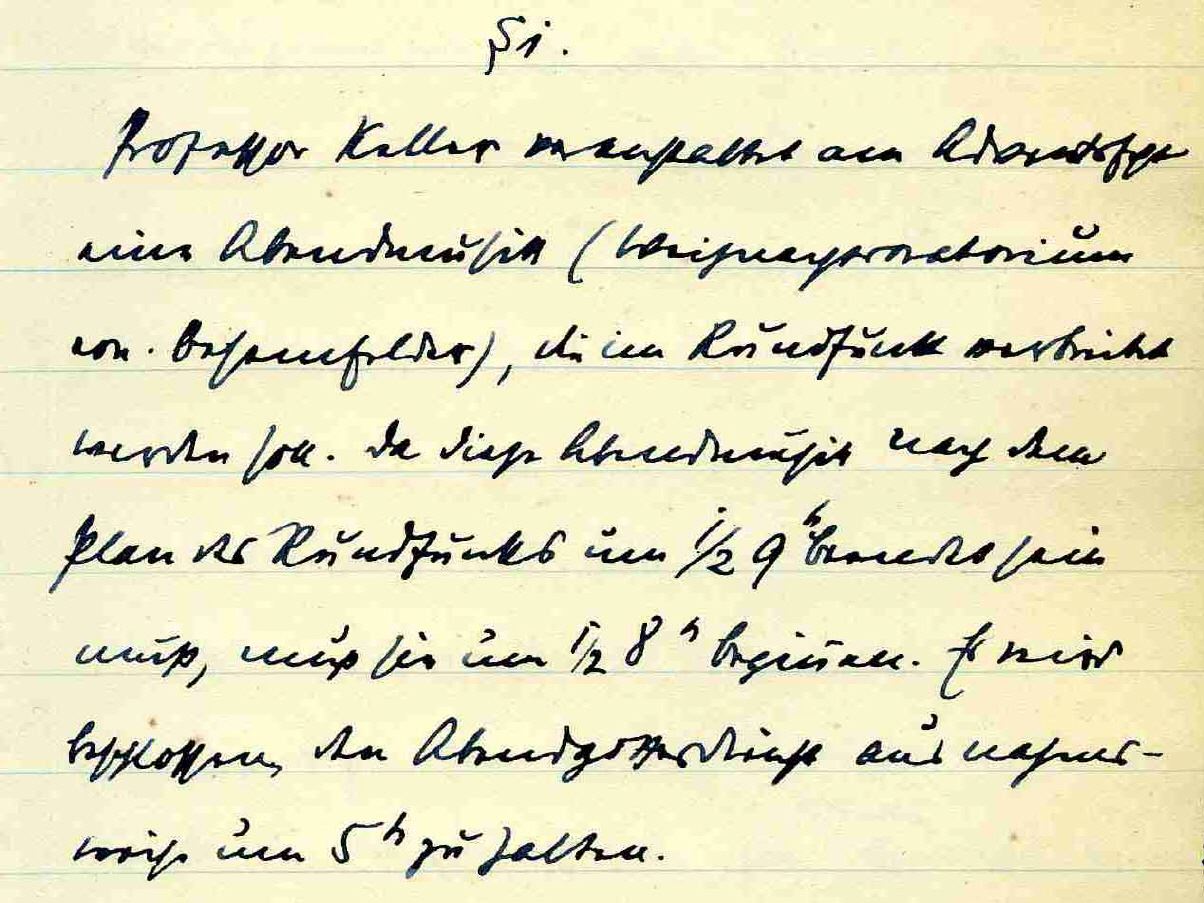 § 1.
Professor Keller veranstaltet am Adventsfest
eine Abendmusik (Weihnachtsoratorium
von), die im Rundfunk verbreitet
werden soll. Da diese Abendmusik nach dem
Plan des Rundfunks um 1/2 9 h beendet sein
muß, muß sie um 1/2 8 h beginnen. Es wird
beschlossen, den Abendgottesdienst ausnahms-
weise um 5 h zu halten.